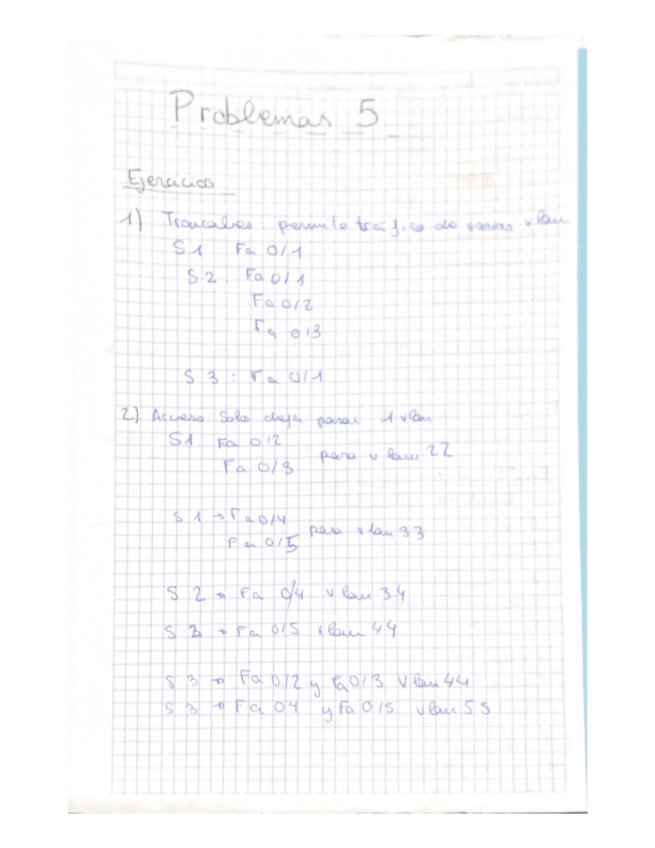 Problemas 5
Ejercicios
1) Troncales: permite tráfico de varias vlan
S1 Fa 0/1
S2: Fa 0/1
Fa 0/2
Fa 0/3
S3: Fa 0/1
2) Acceso Solo deja pasar 1 vlan
S1. Fa 0/2
Fa 0/3 para vlan 22
S1 → Fa 0/4
Fa 0/5 para vlan 33
S2 → Fa 0/4 vlan 34
S2 → Fa 0/5 vlan 44
S3 → Fa 0/2 y Fa 0/3 vlan 44
S3 → Fa 04 y Fa 0/5 vlan 55